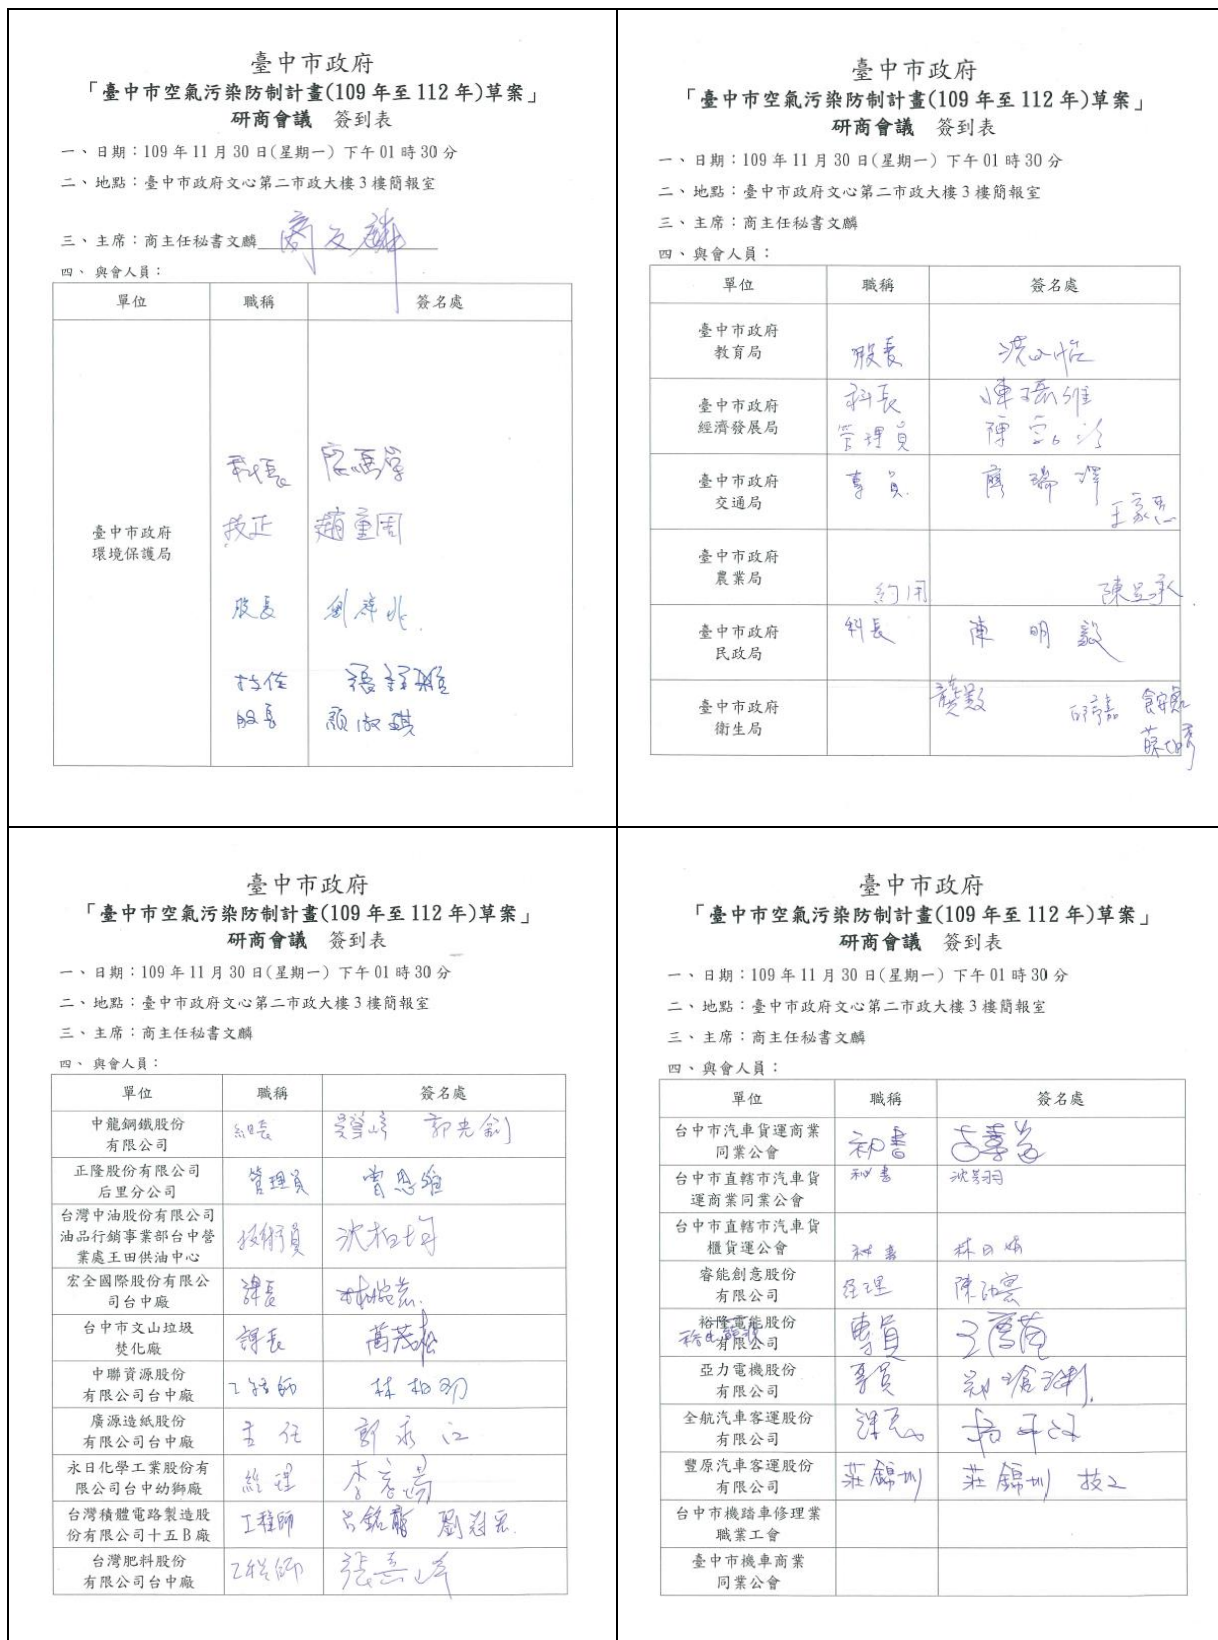 臺中市政府
「臺中市空氣污染防制計畫(109 年至 112 年)草案」
研商會議 簽到表
一、日期：109 年 11 月 30 日(星期一) 下午 01 時 30 分
二、地點：臺中市政府文心第二市政大樓 3 樓簡報室
三、主席：商主任秘書文麟 商文麟
四、與會人員：
單位 職稱 簽名處
臺中市政府
環境保護局
科長
技正 趙童周
股長
技佐
股長 顏淑琪
臺中市政府
「臺中市空氣污染防制計畫(109 年至 112 年)草案」
研商會議 簽到表
一、日期：109 年 11 月 30 日(星期一) 下午 01 時 30 分
二、地點：臺中市政府文心第二市政大樓 3 樓簡報室
三、主席：商主任秘書文麟
四、與會人員：
單位 職稱 簽名處
臺中市政府
教育局
股長
臺中市政府
經濟發展局
科長
管理員
臺中市政府
交通局
專員 廖瑞
臺中市政府
農業局
約用
臺中市政府
民政局
科長 陳明毅
臺中市政府
衛生局
臺中市政府
「臺中市空氣污染防制計畫(109 年至 112 年)草案」
研商會議 簽到表
一、日期：109 年 11 月 30 日(星期一) 下午 01 時 30 分
二、地點：臺中市政府文心第二市政大樓 3 樓簡報室
三、主席：商主任秘書文麟
四、與會人員：
單位 職稱 簽名處
中龍鋼鐵股份
有限公司
組長
正隆股份有限公司
后里分公司
管理員 曾思維
台灣中油股份有限公司
油品行銷事業部台中營
業處王田供油中心
技術員 沈柏均
宏全國際股份有限公
司台中廠
課長
台中市文山垃圾
焚化廠
課長 萬茂松
中聯資源股份
有限公司台中廠
工程師
廣源造紙股份
有限公司台中廠
主任 郭永江
永日化學工業股份有
限公司台中幼獅廠
經理
台灣積體電路製造股
份有限公司十五 B 廠
工程師
台灣肥料股份
有限公司台中廠
工程師
臺中市政府
「臺中市空氣污染防制計畫(109 年至 112 年)草案」
研商會議 簽到表
一、日期：109 年 11 月 30 日(星期一) 下午 01 時 30 分
二、地點：臺中市政府文心第二市政大樓 3 樓簡報室
三、主席：商主任秘書文麟
四、與會人員：
單位 職稱 簽名處
台中市汽車貨運商業
同業公會
秘書
台中市直轄市汽車貨
運商業同業公會
秘書
台中市直轄市汽車貨
櫃貨運公會
秘書
睿能創意股份
有限公司
經理
裕隆電能股份
有限公司
專員
亞力電機股份
有限公司
專員
全航汽車客運股份
有限公司
課長
豐原汽車客運股份
有限公司
莊錦圳 莊錦圳 技工
台中市機踏車修理業
職業工會
臺中市機車商業
同業公會